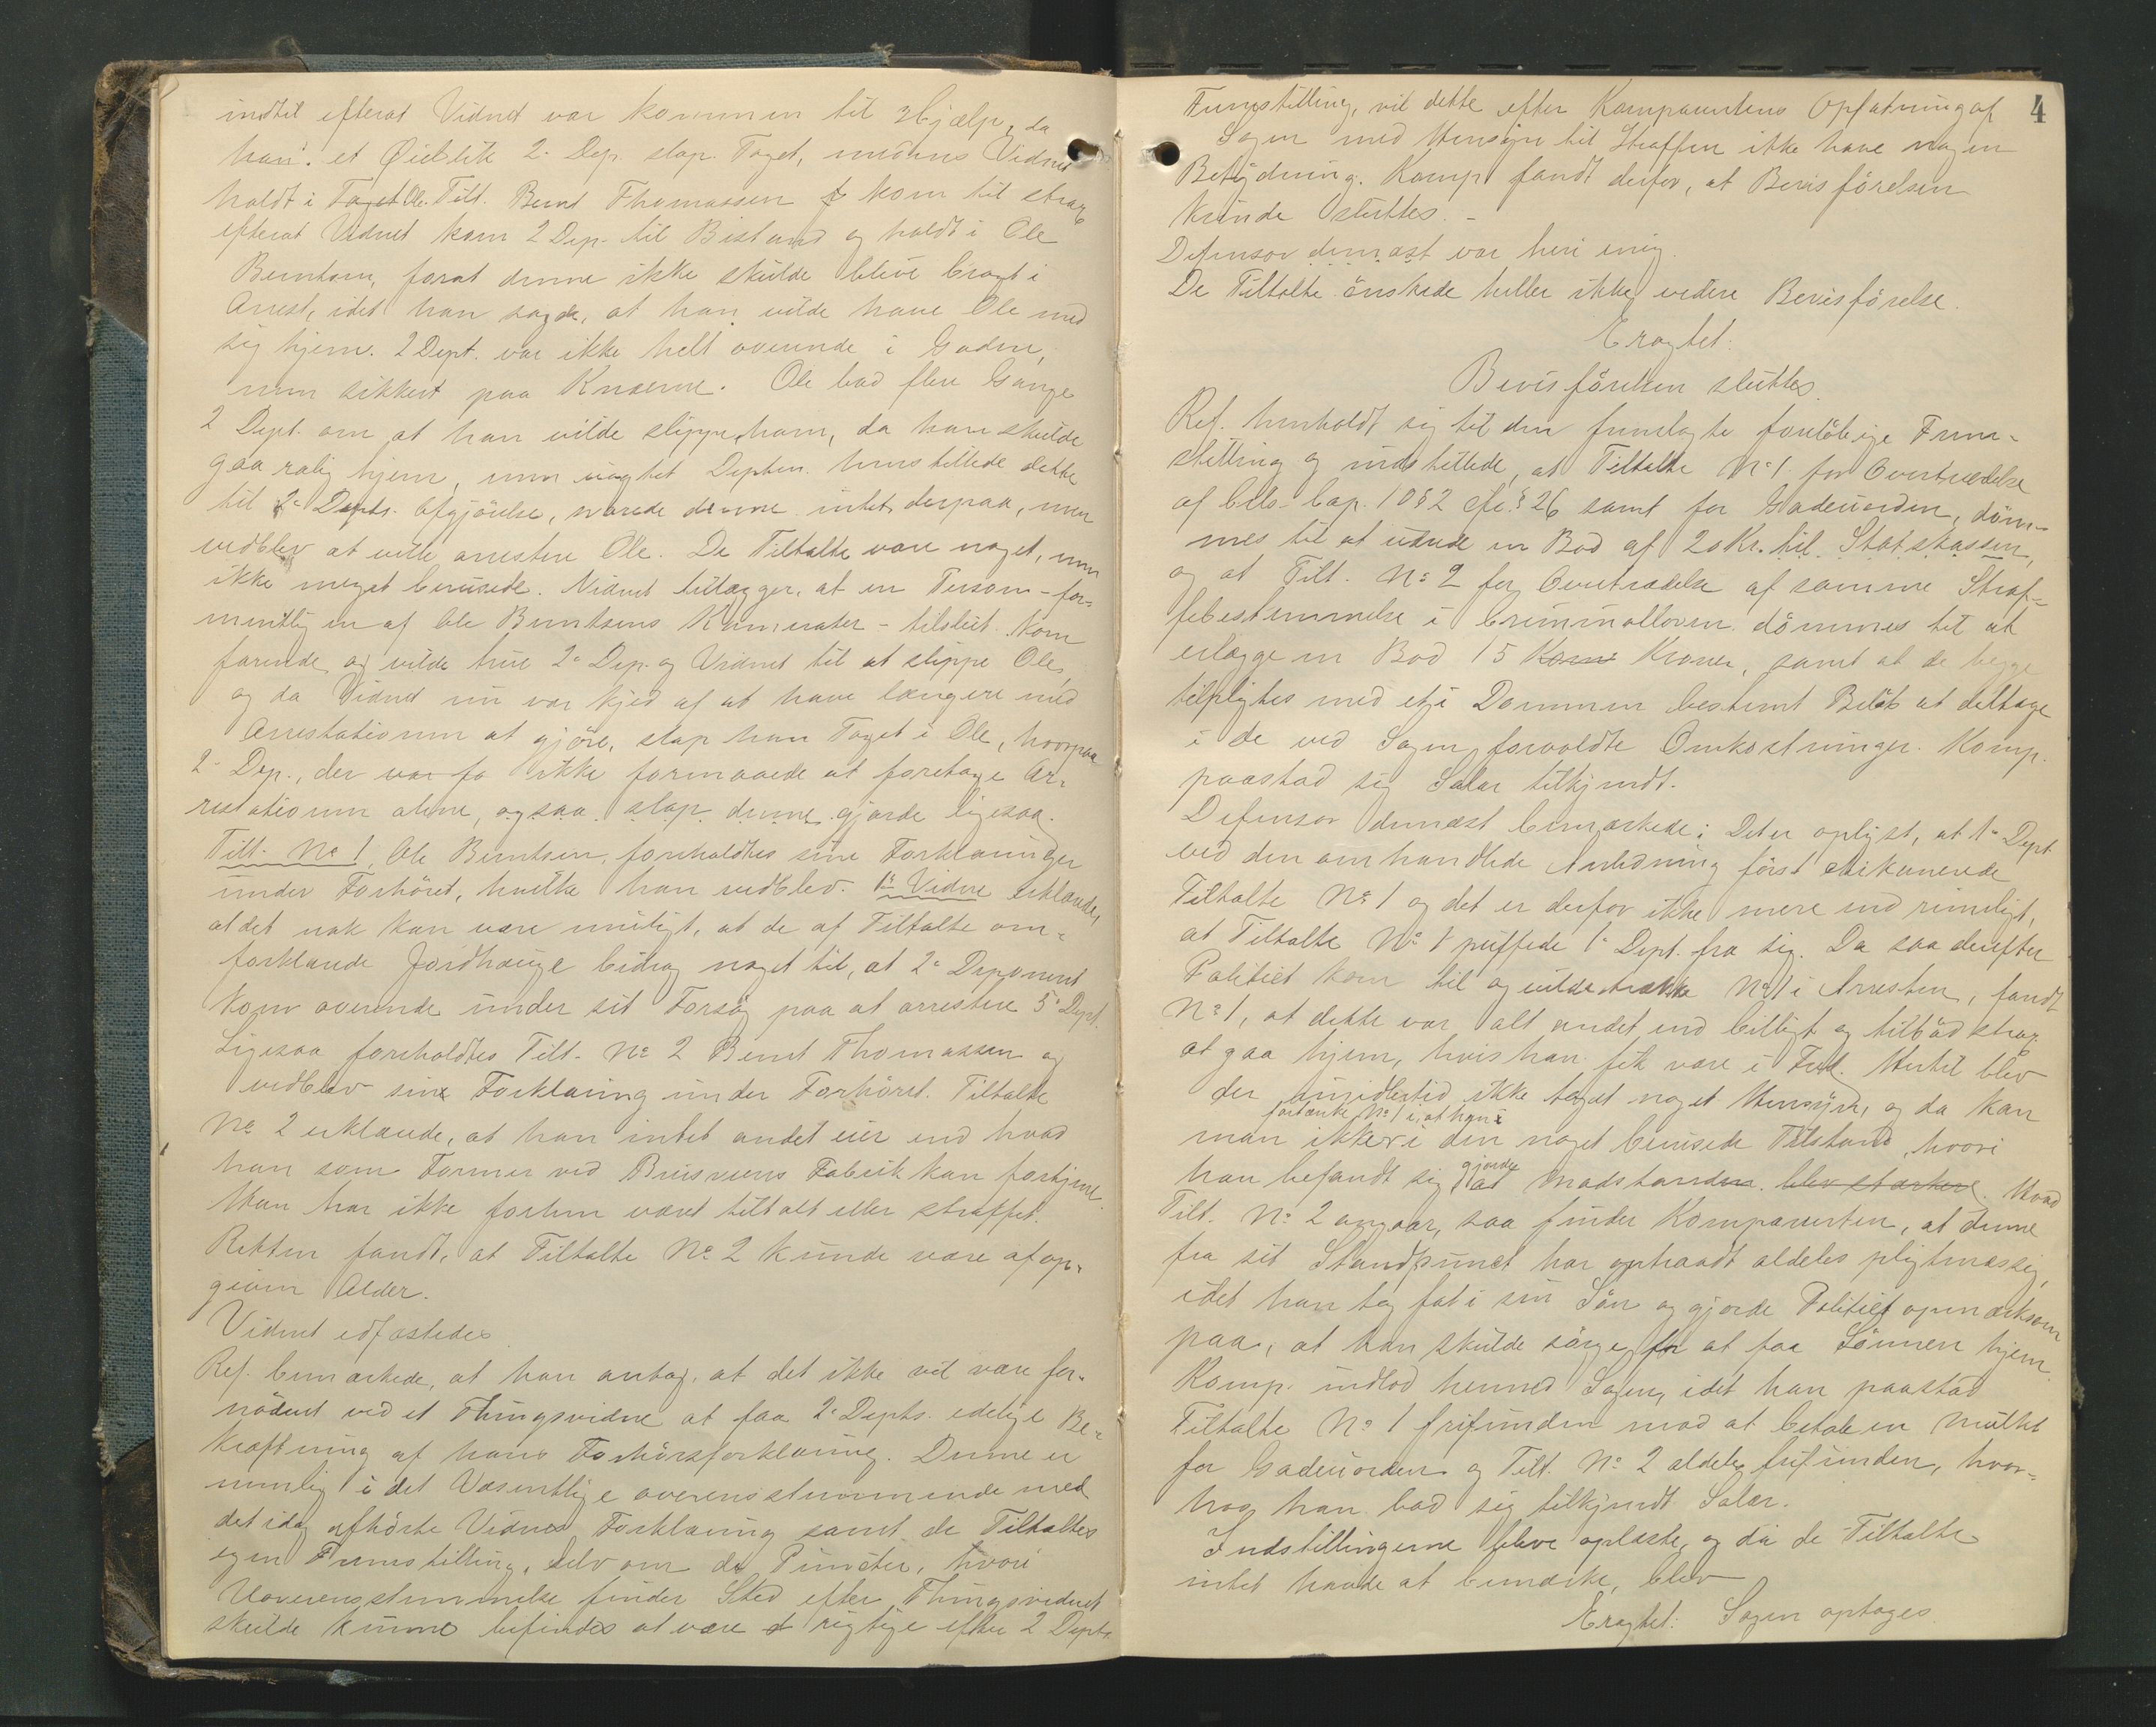 indtil efterat Vidnet var kommen til Hjælp, da
han et Øieblik 2. Dep. slap Taget, medens Vidnet
holdt i Taget Ole. Tilt. Bernt Thomassen kom til strax
efterat Vidnet kom 2 Dep. til Bistand og holdt i Ole
Berntsen, forat denne ikke skulde blive bragt i
Arrest, idet han sagde, at han vilde have Ole med
sig hjem. 2 Dept. var ikke helt overende i Gaden,
men sikkert paa Knæerne. Ole bad flere Gange
2 Dept. om at han vilde slippe ham, da han skulde
gaa rolig hjem, men uagtet Depten. henstillede dette
til 2. Depts. Afgjörelse, svarede denne intet derpaa, men
vedblev at ville arrestere Ole. De Tiltalte vare noget, men
ikke meget berusede. Vidnet tillægger, at en Person - for-
mentlig en af Ole Berntsens Kamerater - tilsidst kom
farende og vilde true 2. Dep. og Vidnet til at slippe Ole,
og da Vidnet nu var kjed af at have længere med
Arrestationen at gjøre, slap han Taget i Ole, hvorpaa
2. Dep., der var fo ikke formaaede at foretage Ar-
restationen alene, ogsaa slap denne gjorde ligesaa.
Tilt. No 1, Ole Berntsen, foreholdtes sine Forklaringer
under Forhöret, hvilke han vedblev. 1ste Vidne erklærede,
at det nok kan være muligt, at de af Tiltalte om-
forklarede Jordhauge bidrog noget til, at 2. Deponent
kom overende under sit Forsög paa at arrestere 5. Dept.
Ligesaa foreholdtes Tilt. No 2 Bernt Thomassen og
vedblev sin Forklaring under Forhöret. Tiltalte
No 2 erklærede, at han intet andet eier end hvad
han som Former ved Brusruens Fabrik kan fortjene.
Han har ikke forhen været tiltalt eller straffet.
Retten fandt, at Tiltalte No 2 kunde være af op-
given Alder.
Vidnet edfæstedes
Ref. bemærkede, at han antog, at det ikke vil være for-
nödent ved et Thingsvidne at faa 2. Depts. edelige Be-
kræftning af hans Forhörsforklaring. Denne er
nemlig i det Væsentlige overensstemmende med
det idag afhörte Vidnes Forklaring samt de Tiltaltes
egen Fremstilling. Selv om de Puncter, hvori
Uoverensstemmelse finder Sted efter Thingsvidnet
skulde kunne befindes at være rigtige efter 2 Depts.
4
Fremstilling, vil dette efter Komparentens Opfatning af
Sagen med Hensyn til Straffen ikke have nogen
Betydning. Komp. fandt derfor, at Bevisförelsen
kunde sluttes. -
Defensor dernæst var heri enig.
De Tiltalte önskede heller ikke videre Bevisförelse.
Eragtet:
Bevisförelsen sluttes.
Ref. henholdt sig til den fremlagte forelöbige Frem-
stilling og indstillede, at Tiltalte No 1 for Overtrædelse
af Crls. Cap. 10 § 2 cfr. § 26 samt for Gadeuorden, döm-
mes til at udrede en Bod af 20 Kr. til Statskassen,
og at Tilt. No 2 for Overtrædelse af samme Straf-
febestemmelse i Criminalloven dömmes til at
erlægge en Bod 15 Krone Kroner, samt at de begge
tilpligtes med et i Dommen bestemt Belöb at deltage
i de ved Sagen forvoldte Omkostninger. Komp.
paastod sig Salær tilkjendt.
Defensor dernæst bemærkede: Det er oplyst, at 1. Dept
ved den omhandlede Anledning först chikanerede
Tiltalte No 1 og det er derfor ikke mere end rimeligt,
at Tiltalte No 1 puffede 1. Dept. fra sig. Da saa derefter
Politiet kom til og vilde trække No 1 i Arresten, fandt
No 1, at dette var alt andet end billigt og tilböd strax
at gaa hjem, hvis han fik være i Fred. Hertil blev
der imidlertid ikke taget noget Hensyn, og da kan
fortænke No 1 i, at han i
man ikke i den noget berusede Tilstand, hvori
gjorde
han befandt sig, at Modstanden blev stærkere. Hvad
Tilt. No 2 angaar, saa finder Komparenten, at denne
fra sit Standpunct har optraadt aldeles pligtmæssig,
idet han tog fat i sin Sön og gjorde Politiet opmærksom
paa, at han skulde sörge for at faa Sönnen hjem.
Komp. indlod hermed Sagen, idet han paastod
Tiltalte No 1 frifunden mod at betale en Mulkt
for Gadeuorden og Tilt. No 2 aldeles frifunden, hvor-
hos han bad sig tilkjendt Salær.
Indstillingerne bleve oplæste, og da de Tiltalte
intet havde at bemærke, blev
Eragtet: Sagen optages.